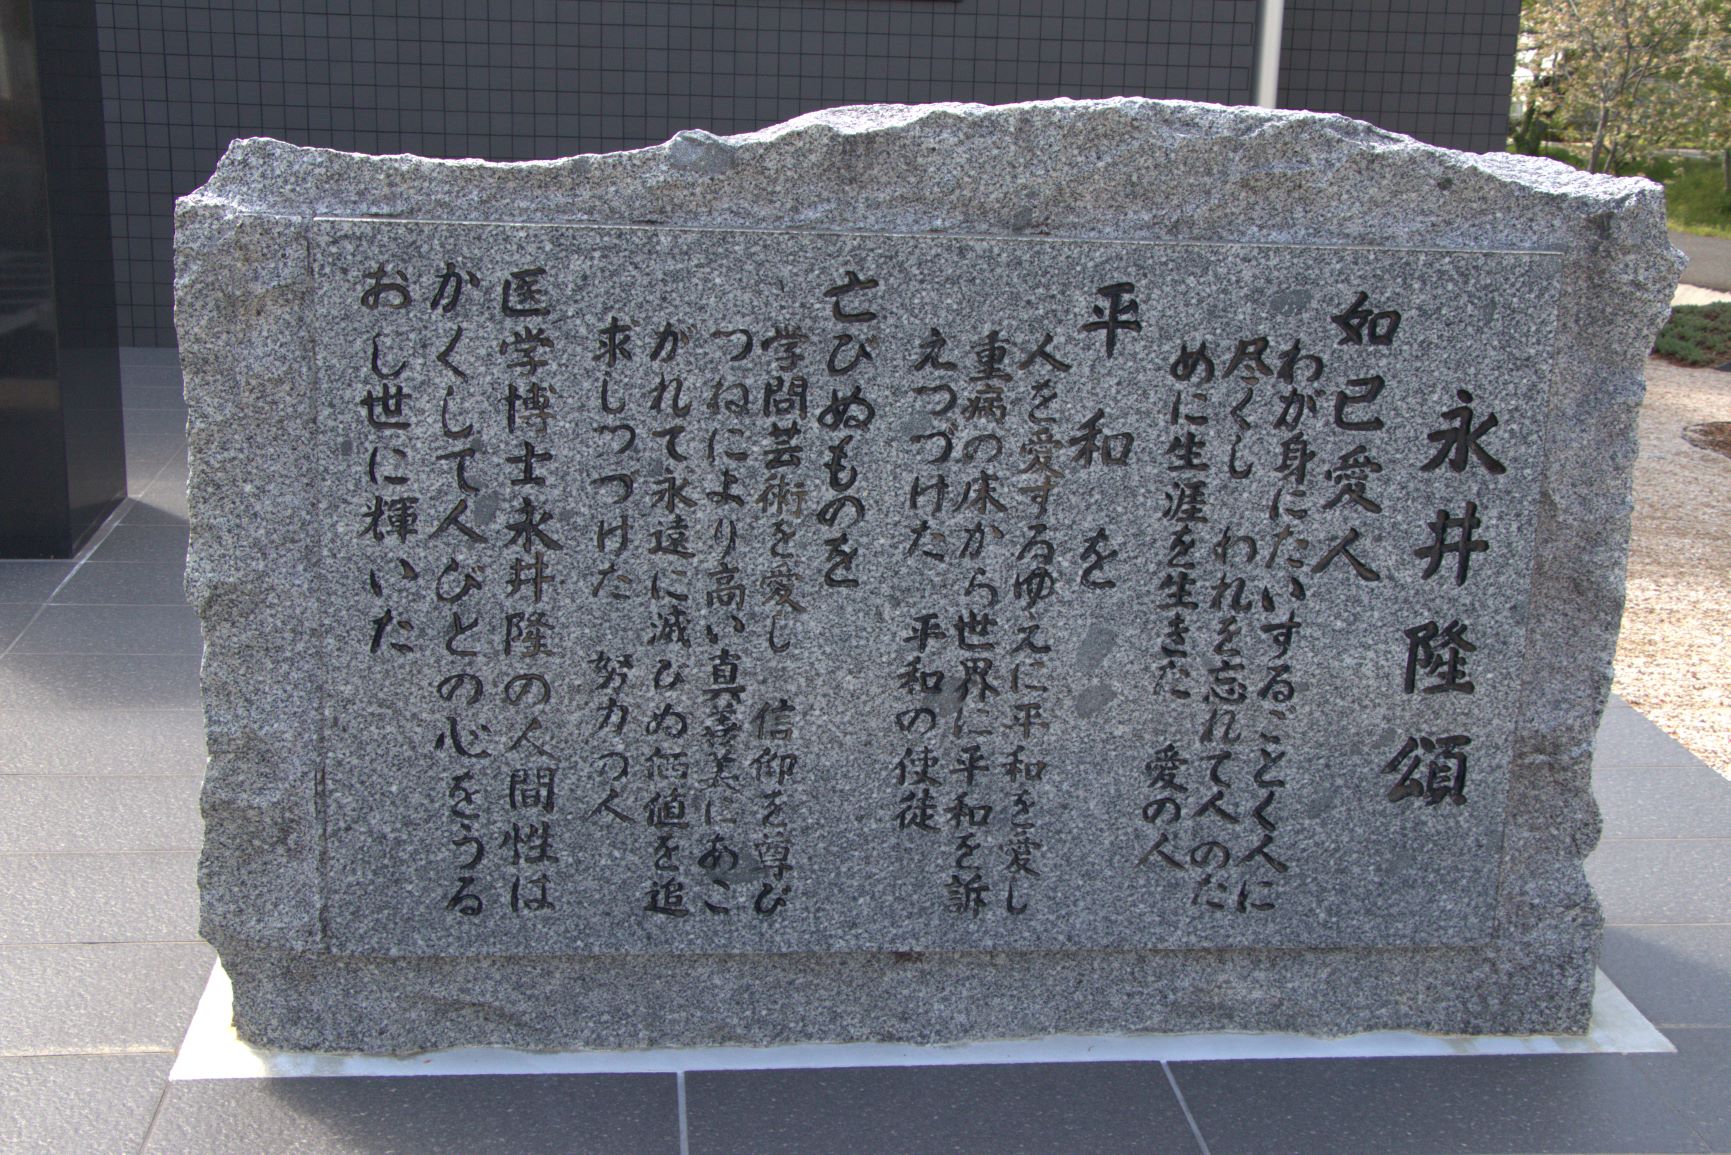 永井隆頌
如己愛人
わが身にたいするごとく人に
尽くし　われを忘れて人のた
めに生涯を生きた　愛の人
平和を
人を愛するゆえに平和を愛し
重病の床から世界に平和を訴
えつづけた　平和の使徒
亡びぬものを
学問芸術を愛し　信仰を尊び
つねにより高い真善美にあこ
がれて永遠に滅びぬ価値を追
求しつづけた　努力の人
医学博士永井隆の人間性は
かくして人びとの心をうる
おし世に輝いた